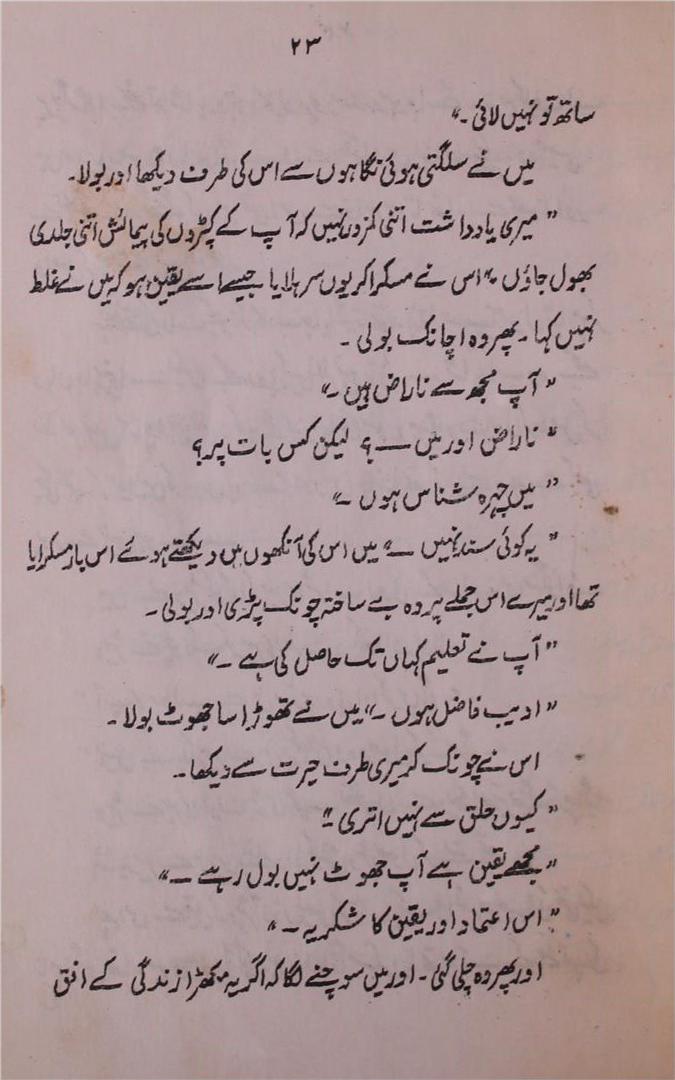 ۲۳
ساتھ تو نہیں لائی ۔"
میں نے سلگتی ہوئی نگاہوں سے اس کی طرف دیکھا اور بولا۔
"میری یادداشت اتنی کمزور نہیں کہ آپ کے کپڑوں کی پیمائش اتنی جلدی
بھول جاؤں ۔" اس نے مسکرا کر یوں سر ہلایا جیسے اسے یقین ہو کہ میں نے غلط
نہیں کہا ۔ پھر وہ اچانک بولی ۔
"آپ مجھ سے ناراض ہیں ۔"
"ناراض اور میں ــــ؟ لیکن کس بات پر؟
"میں چہرہ شناس ہوں ۔"
"یہ کوئی سند نہیں ــ" میں اس کی آنکھوں میں دیکھتے ہوئے اس بار مسکرایا
تھا اور میرے اس جملے پر وہ بے ساختہ چونک پڑی اور بولی ۔
"آپ نے تعلیم کہاں تک حاصل کی ہے ۔"
"ادیب فاضل ہوں ۔" میں نے تھوڑا سا جھوٹ بولا ۔
اس نے چونک کر میری طرف حیرت سے دیکھا ۔
"کیوں حلق سے نہیں اتری ۔"
"مجھے یقین ہے آپ جھوٹ نہیں بول رہے ــ"
"اس اعتماد اور یقین کا شکریہ ــ"
اور پھر وہ چلی گئی ۔ اور میں سوچنے لگا کہ اگر یہ مکھڑا زندگی کے افق